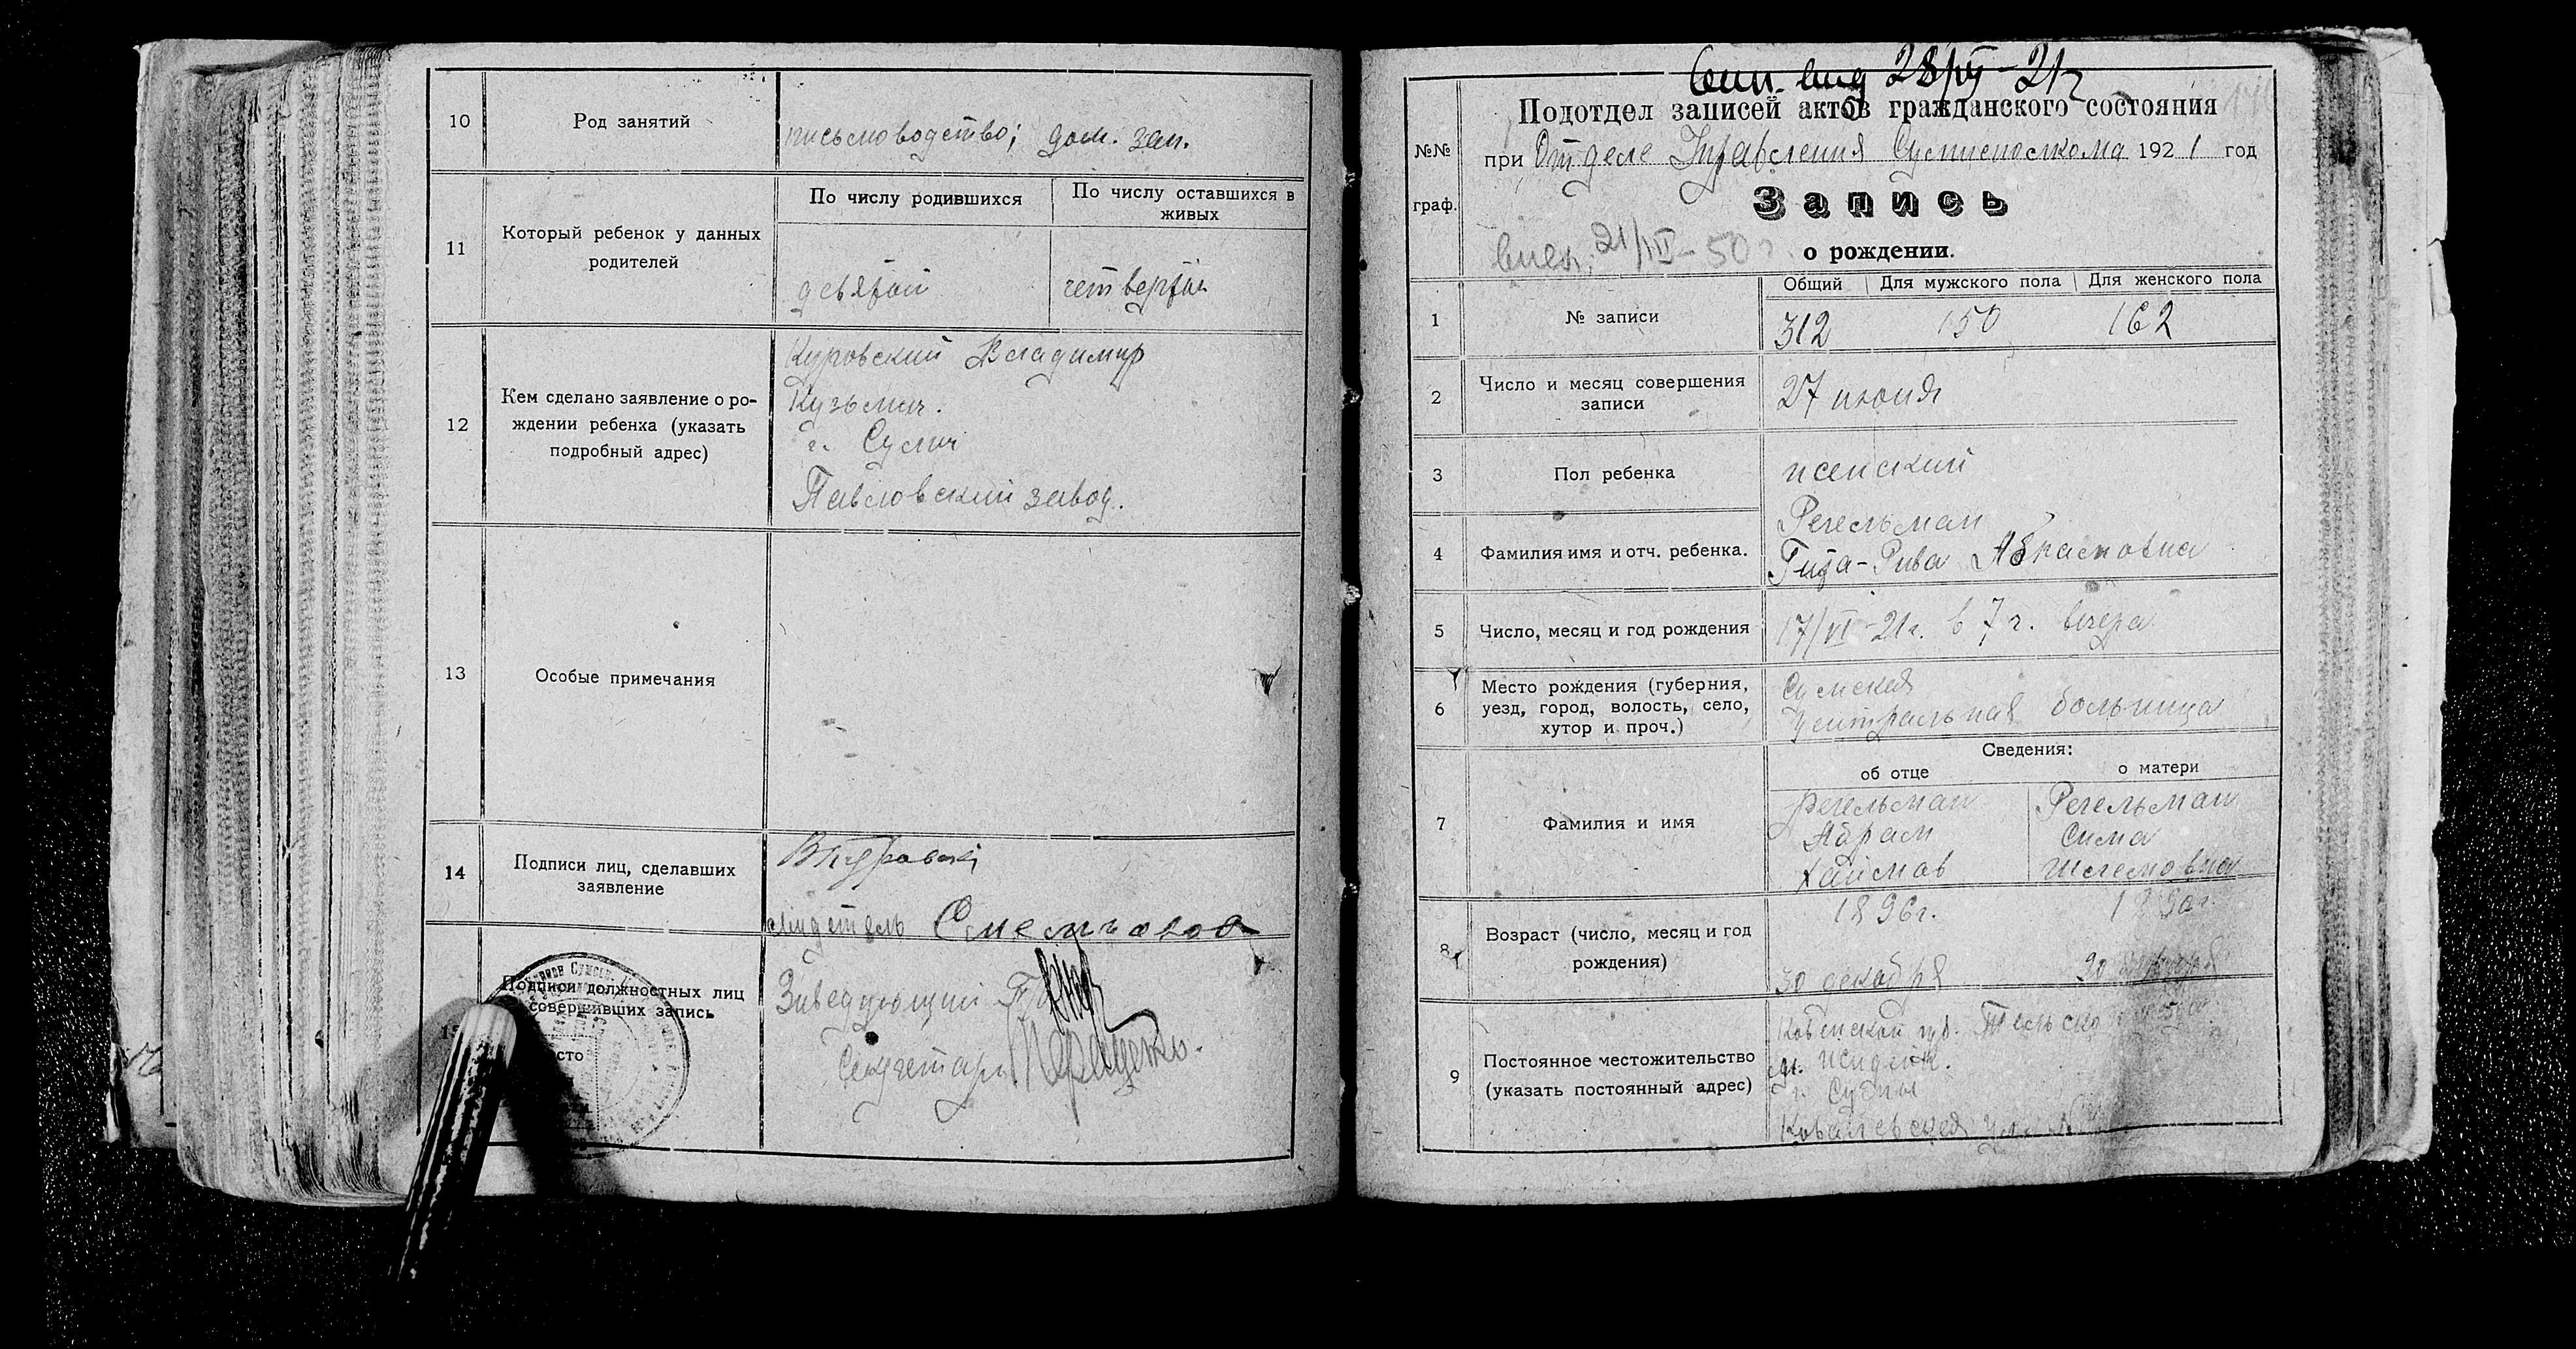 10
Род занятий
письмоводство; дом. зан.
11
Который ребенок у данных
родителей
По числу родившихся
По числу оставшихся в
живых
девятый
четвертый
12
Кем сделано заявление о ро-
ждении ребенка (указать
подробный адрес)
Куровский Владимир
Кузьмич.
г. Сумы
Павловский завод.
13
Особые примечания
14
Подписи лиц, сделавших
заявление
ВКуровский
15
Подписи должностных лиц
совершивших запись
Заведующий
Секретарь
28/VI-21г
Подотдел записей актов гражданского состояния
№№
граф.
при Отделе Управления Сумисполкома 1921 год
Запись
о рождении.
Общий
Для мужского пола
Для женского пола
1
№ записи
312
150
162
2
Число и месяц совершения
записи
27 июня
3
Пол ребенка
женский
4
Фамилия имя и отч. ребенка.
Регельман
Гита-Рива Абрамовна
5
Число, месяц и год рождения
17/VI-21г. в 7 ч. вечера
6
Место рождения (губерния,
уезд, город, волость, село,
хутор и проч.)
Сумская
Центральная больница
Сведения:
об отце
о матери
7
Фамилия и имя
Регельман
Абрам
Хаимов
Регельман
Сима
Шлемовна
8
Возраст (число, месяц и год
рождения)
1896г.
30 декабря
9
Постоянное местожительство
(указать постоянный адрес)
Ковенской губ.
г. Сумы